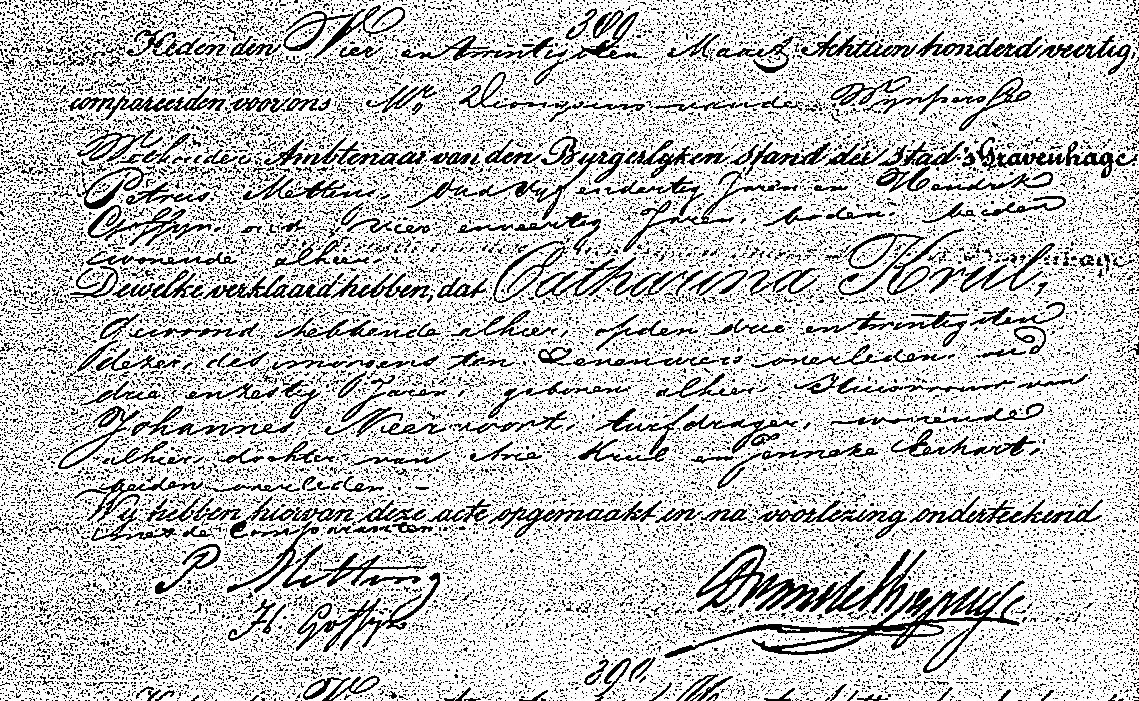 389
Heden den Vier en twintigsten Maart Achttien honderd veertig,
compareerden voor ons Mr. Dionysius van de Wynpersse
Wethouder Ambtenaar van den Burgerlyken stand der stad 's Gravenhage
Petrus Mettus, oud vyf en dertig Jaren en Hendrik
Goffyn oud vier en veertig Jaren, boden beiden
wonende alhier
Dewelke verklaard hebben, dat Catharina Krul,
gewoond hebbende alhier, op den drie en twintigsten
dezer, des morgens ten Zeven ure is overleden oud
drie en zestig Jaren, geboren alhier Huisvrouw van
Johannes Neervoort, turfdrager, wonende
alhier, dochter van Arie Krul en Jenneke Eerhart,
beiden overleden. -
Wy hebben hiervan deze acte opgemaakt en na voorlezing onderteekend
met de Comparanten
P Mettus
H. Goffyn
390